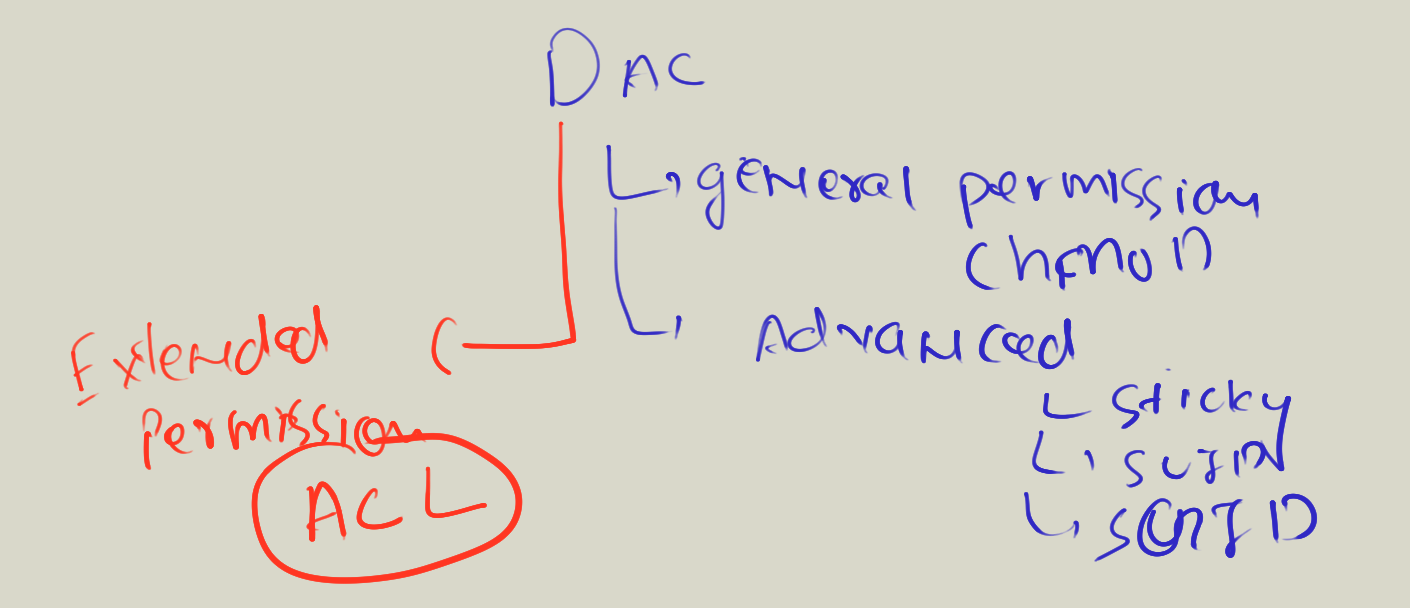 DAC
general permission
chmod
Advanced
Sticky
SUID
SGID
Extended
Permission
ACL